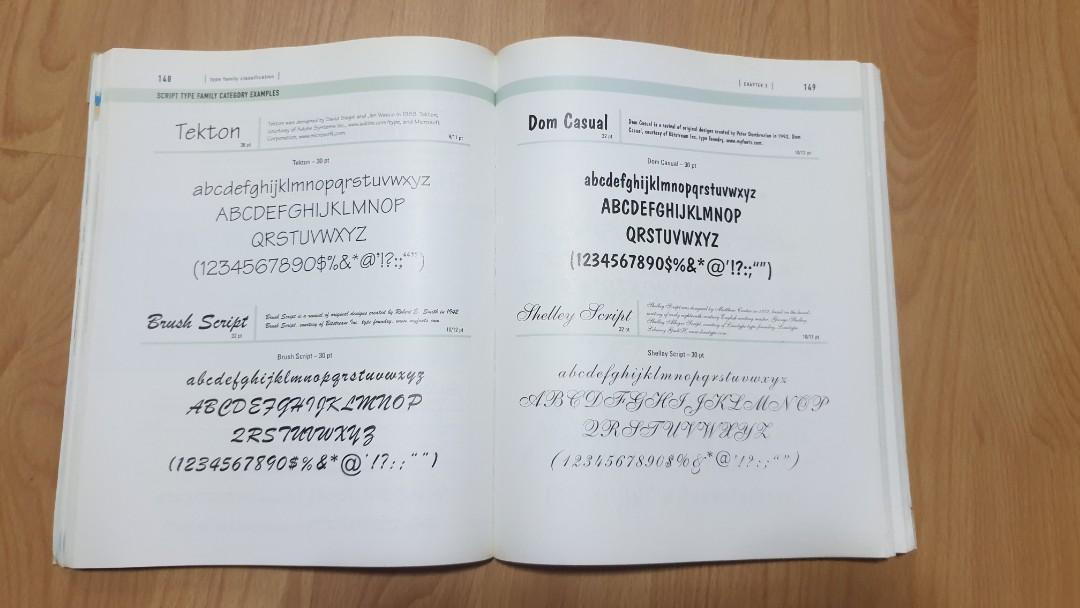 148
type family classification
SCRIPT TYPE FAMILY CATEGORY EXAMPLES
Tekton
36 pt
Tekton was designed by David Siegel and Jim Wasco in 1989. Tekton,
courtesy of Adobe Systems Inc., www.adobe.com/type, and Microsoft
Corporation, www.microsoft.com.
Tekton – 30 pt
abcdefghijklmnopqrstuvwxyz
ABCDEFGHIJKLMNOP
QRSTUVWXYZ
(1234567890$%&*@'!?:;“”)
Brush Script
32 pt
Brush Script is a revival of original designs created by Robert E. Smith in 1942.
Brush Script, courtesy of Bitstream Inc. type foundry, www.myfonts.com
10/12 pt
Brush Script – 30 pt
abcdefghijklmnopqrstuvwxyz
ABCDEFGHIJKLMNOP
QRSTUVWXYZ
(1234567890$%&*@'!?:;“”)
CHAPTER 3
149
Dom Casual
32 pt
Dom Casual is a revival of original designs created by Peter Dombrezian in 1952. Dom
Casual, courtesy of Bitstream Inc. type foundry, www.myfonts.com.
10/13 pt
Dom Casual – 30 pt
abcdefghijklmnopqrstuvwxyz
ABCDEFGHIJKLMNOP
QRSTUVWXYZ
(1234567890$%&*@'!?:;“”)
Shelley Script
32 pt
Shelley Script was designed by Matthew Carter in 1972, based on the hand-
writing of early eighteenth century English writing master, George Shelley.
Shelley Allegro Script, courtesy of Linotype type foundry, Linotype
Library GmbH, www.linotype.com
10/11 pt
Shelley Script – 30 pt
abcdefghijklmnopqrstuvwxyz
ABCDFGHIJKLMNOP
QRSTUVWXYZ
(1234567890$%&*@'!?:;“”)